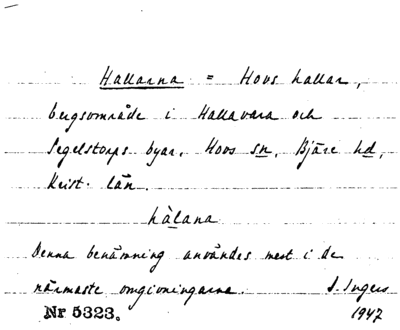 Hallarna = Hovs hallar,
bergsområde i Hallavara och
Segelstorps byar, Hovs sn, Bjäre hd,
Krist. län.
hàlana
Denna benämning användes mest i de
närmaste omgivningarna. I. Ingers
Nr 5323. 1947